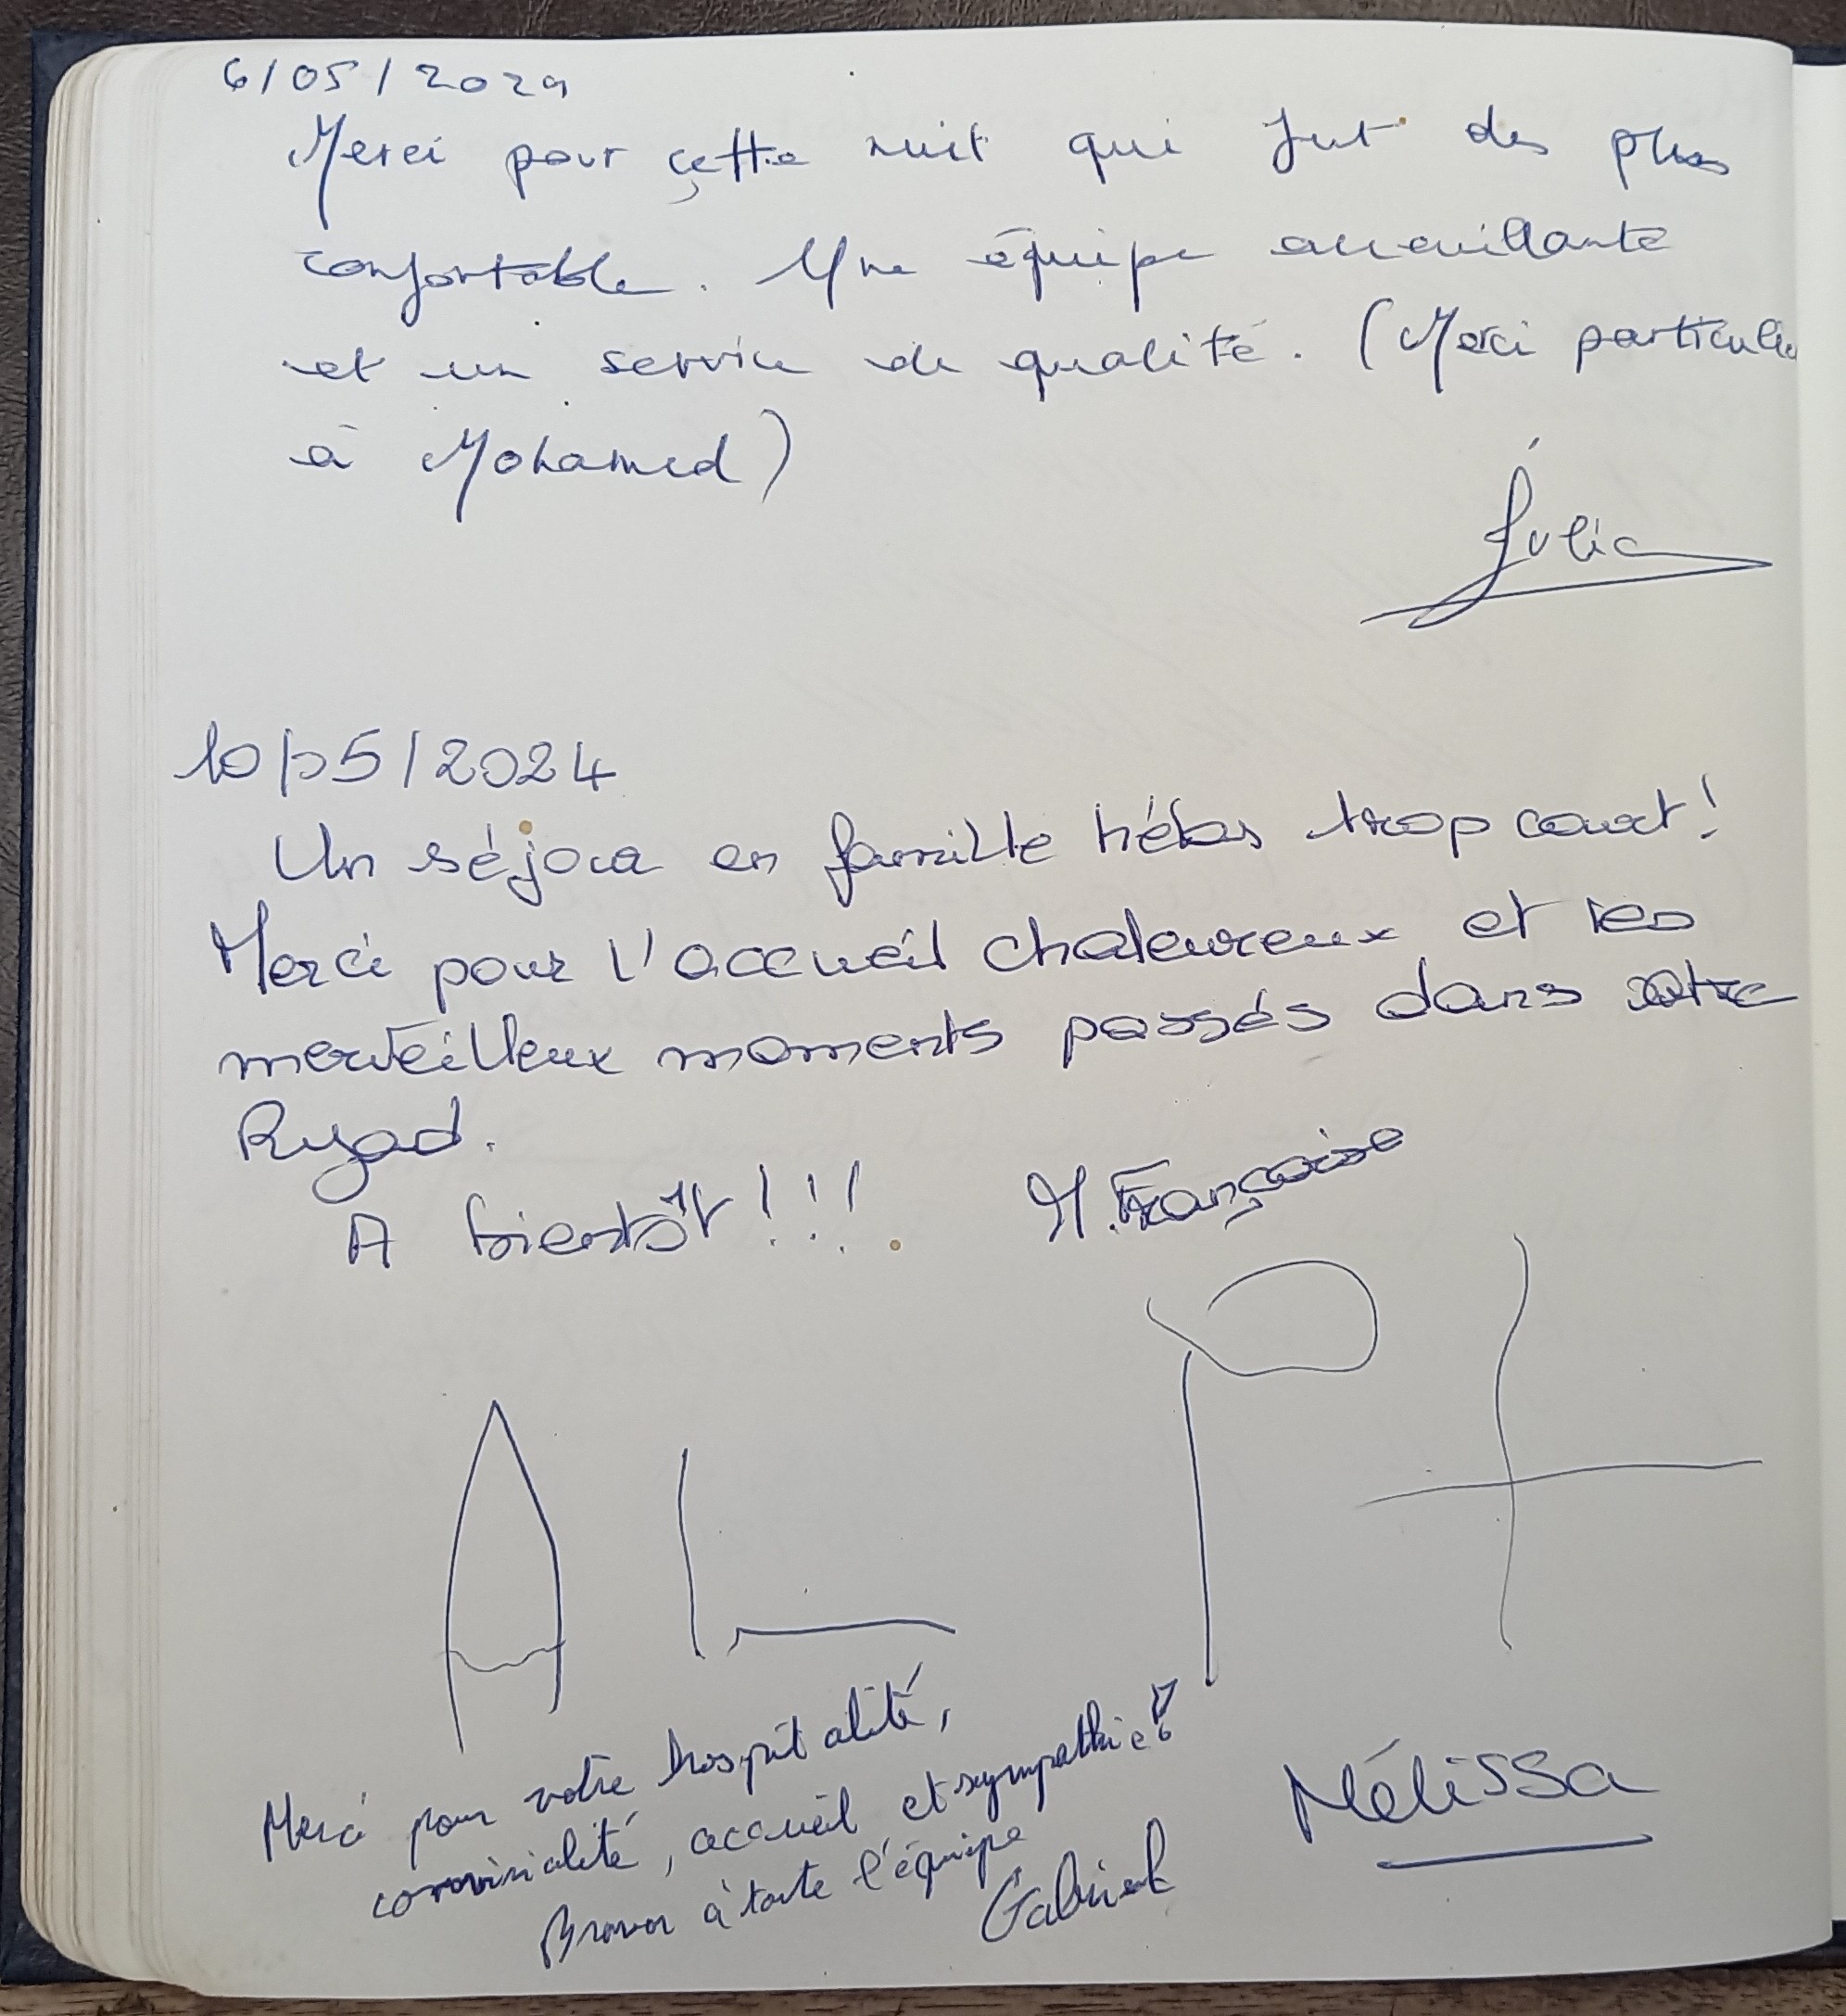 6/05/2024
Merci pour cette nuit qui fut des plus
confortable. Une équipe accueillante
et un service de qualité. (Merci particulier
à Mohamed)
Julia
10/05/2024
Un séjour en famille hélas trop court!
Merci pour l'accueil chaleureux et les
merveilleux moments passés dans votre
Ryad.
A bientôt!!!.
M.Françoise
A L P t
Merci pour votre hospitalité,
convivialité, accueil et sympathie!
Bravo à toute l'équipe
Gabriel
Mélissa